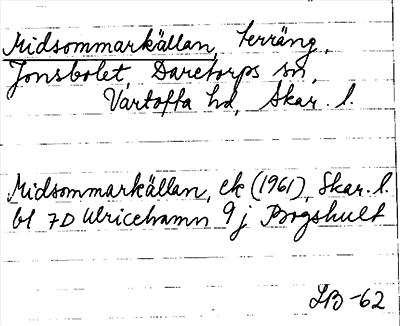 Midsommarkällan, terräng,
Jonsbolet, Daretorps sn,
Vartofta hd, Skar. l.
Midsommarkällan, ek (1961), Skar. l.
bl 7D Ulricehamn 9j Bogshult
LB-62